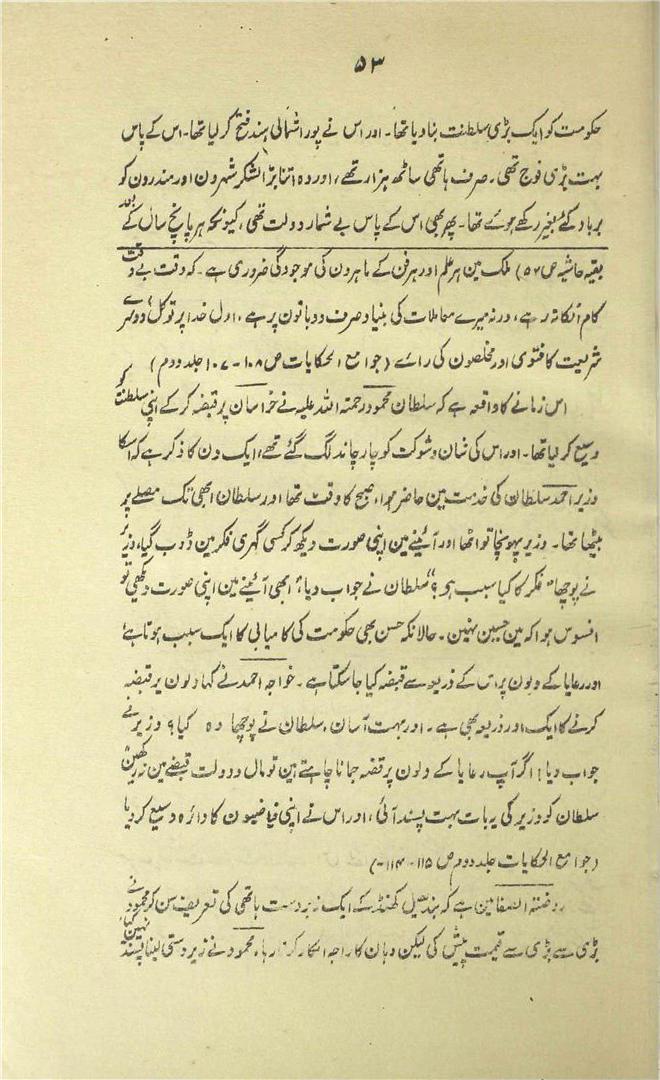 ۵۳
حکومت کو ایک بڑی سلطنت بنا دیا تھا۔ اور اس نے پورا شمالی ہند فتح کر لیا تھا۔ اس کے پاس
بہت بڑی فوج تھی۔ صرف ہاتھی ساٹھ ہزار تھے، اور وہ اتنا بڑا لشکر شہرون اور مندرون کو
برباد کئے بغیر رکھے ہوئے تھا۔ پھر بھی اس کے پاس بے شمار دولت تھی، کیونکہ ہر پانچ سال کے بعد
بقیہ حاشیہ ص ۵۲) ملک مین ہر علم اور ہر فن کے ماہرون کی موجودگی ضروری ہے۔ کہ وقت بے وقت
کام اٹکا نہ رہے، ورنہ میرے معاملات کی بنیاد صرف دو باتون پر ہے، اول خدا پر توکل، دوسرے
شریعت کا فتوی اور مخلصون کی رائے (جوامع الحکایات ص ۱۰۸۔ ۱۰۷ جلد دوم)
اس زمانے کا واقعہ ہے کہ سلطان محمود رحمتہ اللہ علیہ نے خراسان پر قبضہ کر کے اپنی سلطنت کو
وسیع کر لیا تھا۔ اور اس کی شان و شوکت کو چار چاند لگ گئے تھے، ایک دن کا ذکر ہے کہ اسکا
وزیر احمد سلطان کی خدمت مین حاضر ہوا، صبح کا وقت تھا اور سلطان ابھی تک مصلے پر
بیٹھا تھا۔ وزیر پہونچا تو اٹھا اور آئینے مین اپنی صورت دیکھ کر کسی گہری فکر مین ڈوب گیا، وزیر
نے پوچھا "فکر کا کیا سبب ہو؟" سلطان نے جواب دیا، ابھی آئینے مین اپنی صورت دیکھی تو
افسوس ہوا کہ مین حسین نہین۔ حالانکہ حسن بھی حکومت کی کامیابی کا ایک سبب ہوتا ہے
اور رعایا کے دلون پر اس کے ذریعہ سے قبضہ کیا جا سکتا ہے۔ خواجہ احمد نے کہا دلون پر قبضہ
کرنے کا ایک اور ذریعہ بھی ہے۔ اور بہت آسان، سلطان نے پوچھا وہ کیا؟ وزیر نے
جواب دیا! اگر آپ رعایا کے دلون پر قضہ جمانا چاہتے ہین تو مال و دولت قبضے مین نہ رکھین
سلطان کو وزیر کی یہ بات بہت پسند آئی، اور اس نے اپنی فیاضیون کا دائرہ وسیع کر دیا
(جوامع الحکایات جلد دوم ص ۱۱۵۔ ۱۱۴۔)
روضتہ الصفا مین ہے کہ بندھیل کھنڈ کے ایک زبردست ہاتھی کی تعریف سن کر محمود نے
بڑی سے بڑی سے قیمت پیش کی لیکن وہان کا راجہ انکار کرتا رہا، محمود نے زبردستی لینا پسند نہین کیا،